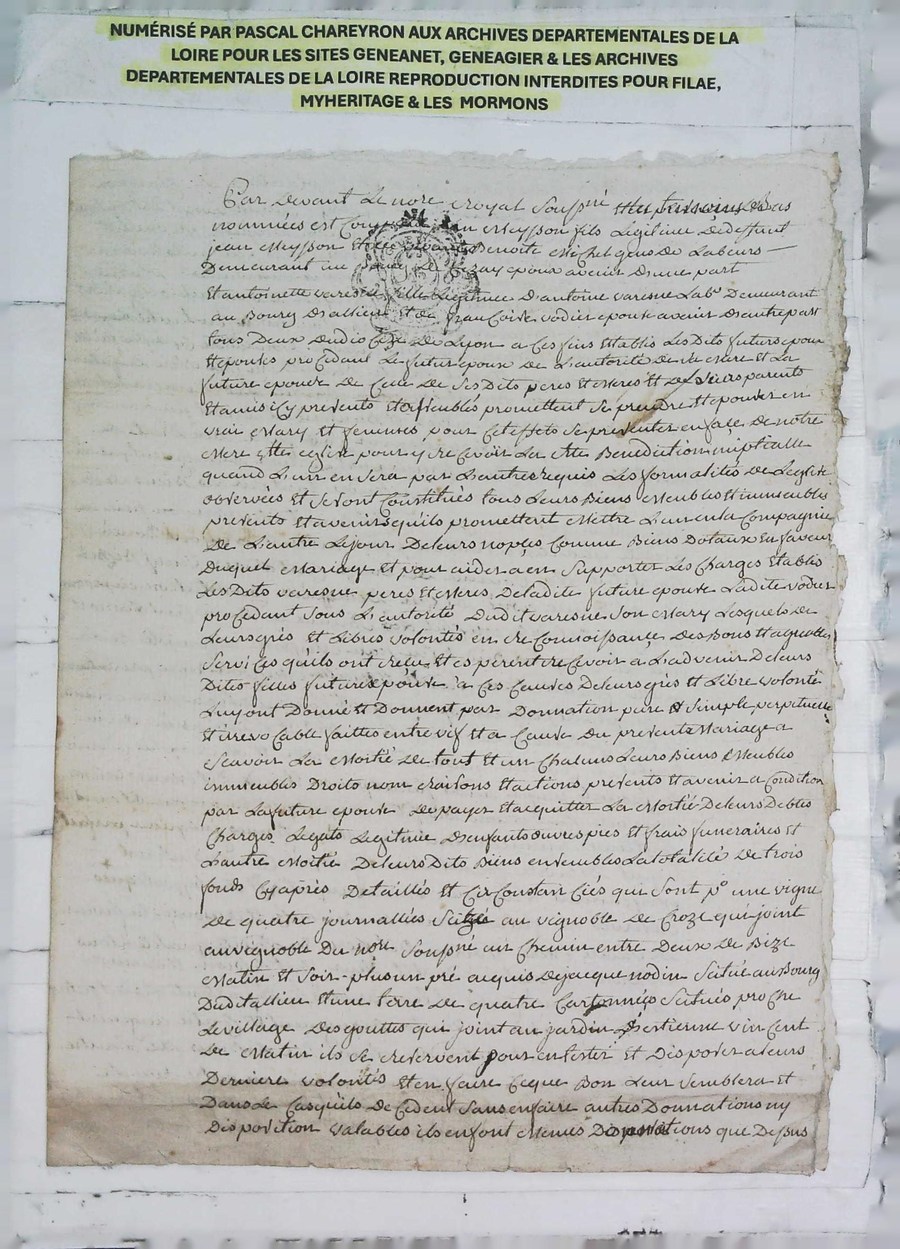 NUMÉRISÉ PAR PASCAL CHAREYRON AUX ARCHIVES DEPARTEMENTALES DE LA
LOIRE POUR LES SITES GENEANET, GENEAGIER & LES ARCHIVES
DEPARTEMENTALES DE LA LOIRE REPRODUCTION INTERDITES POUR FILAE,
MYHERITAGE & LES MORMONS
Par devant Le nore royal Soussné
nommées est jean Meysson fils Legitime De deffunt
jean Meysson Et Benoite Michel gens de Labeurs
Demeurant au epoux avenir D'une part
Et antoinette varesne fille Legitimee D'antoine varesne Labr Demeurant
au Bourg D'allieu Et de françoise vodier epouse avenir D'autre part
tous Deux Dudioceze de Lyon a ces fins Etablis Les Dits futurs epoux
Et epouse procedant Le futur epoux de L'autorité De sa Mere Et La
future epouse de Celle De Ses Dits peres Et Meres Et de parents
Et amis icy presents Et assemblés promettent Se prendre Et epouser en
vrais Mary Et femmes pour Cet effets Se presenter en face de notre
Mere Ste eglise pour y recevoir La Ste Benediction nuptialle
quand L'un en Sera par L'autre requis Les formalités de L'eglise
observées Et Se sont Constitués tous Leurs Biens Meubles Et immeubles
presents Et avenir qu'ils promettent Mettre L'un en la Compagnie
De L'autre Le jour De leurs nopces Comme Biens Dotaux En faveur
Duquel Mariage Et pour aider a en Supporter Les Charges Etablis
Les Dits varesne peres Et Meres De ladite future epouse Ladite vodier
procedant Sous L'autorité Dudit varesne Son Mary Lesquels de
Leurs grés Et Libres volontés en reconnoissance Des Bons Et agreables
Services qu'ils ont reçu Et esperent recevoir a L'advenir De leurs
Dites filles future epouse a Ces Causes De leurs grés et Libre volonté
Luy ont Donné Et Donnent par Donnation pure & Simple perpetuelle
Et irrevocable faittes entre vif Et a Cause Du present Mariage a
Scavoir La Moitié De tout Et un Chacuns Leurs Biens Meubles
immeubles Droits nom raisons Et actions presents Et avenir a Condition
par La future epouse De payer Et acquitter La Moitié De leurs Debtes
Charges Legats Legitime D'enfants œuvres pies Et frais funeraires Et
L'autre Moitié De leurs Dits Biens ensembles La totalité De trois
fonds Cy après Detaillés Et Circonstanciés qui Sont po une vigne
De quatre journallées au vignoble De Croze qui joint
au vignoble Du nore Soussné un Chemin entre Deux De Bize
Matin Et Soir - plus un pré acquis De jacque nodin Situé au Bourg
Dudit allieu Et une terre De quatre Cartonnées Situés proche
Le village Des gouttes qui joint au jardin D'estienne vincent
De Matin ils Se reservent pour en tester Et Disposer a leurs
Derniere volontés Et en faire Ceque Bon Leur Semblera Et
Dans Le Cas qu'ils Decedent Sans en faire autres Donnations ny
Disposition valables ils en font Memes que Dessus